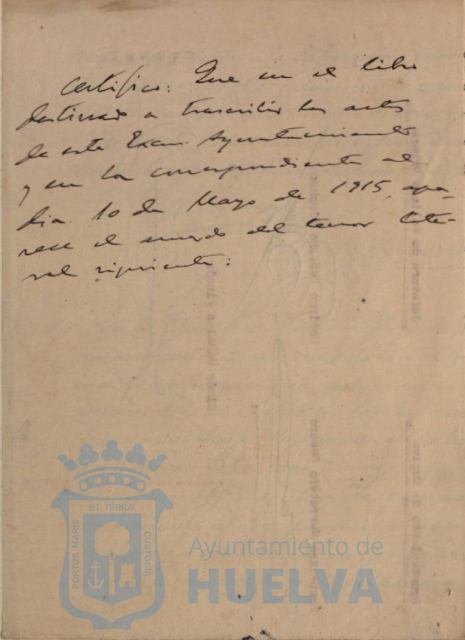 Certifico: Que en el libro
destinado a transcribir las actas
de este Excmo. Ayuntamiento
y en la correspondiente al
dia 10 de Mayo de 1915, apa-
rece el acuerdo del tenor lite-
ral siguiente:
ET TERRÆ
PORTUS MARIS
CUSTODIA
Ayuntamiento de
HUELVA